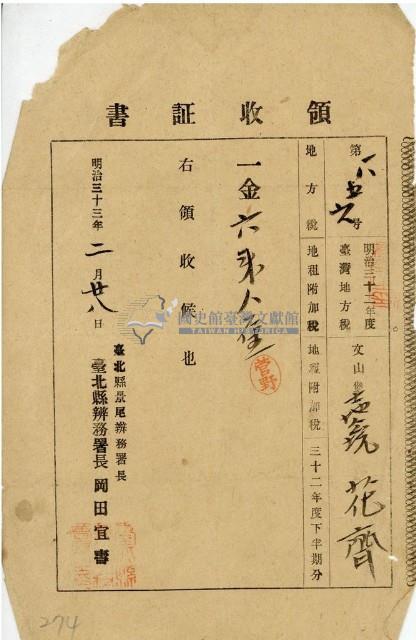 領收証書
第八五六号
明治三十二年度
臺灣地方税
文山堡
花齊
地方税
地租附加税
地租附加税
三十二年度下半期分
一金六
菅野
右領收候也
明治三十三年二月廿八日
臺北縣景尾辨務署長
臺北縣辨務署長 岡田宜壽
國史館臺灣文獻館
TAIWAN HISTORICA
274